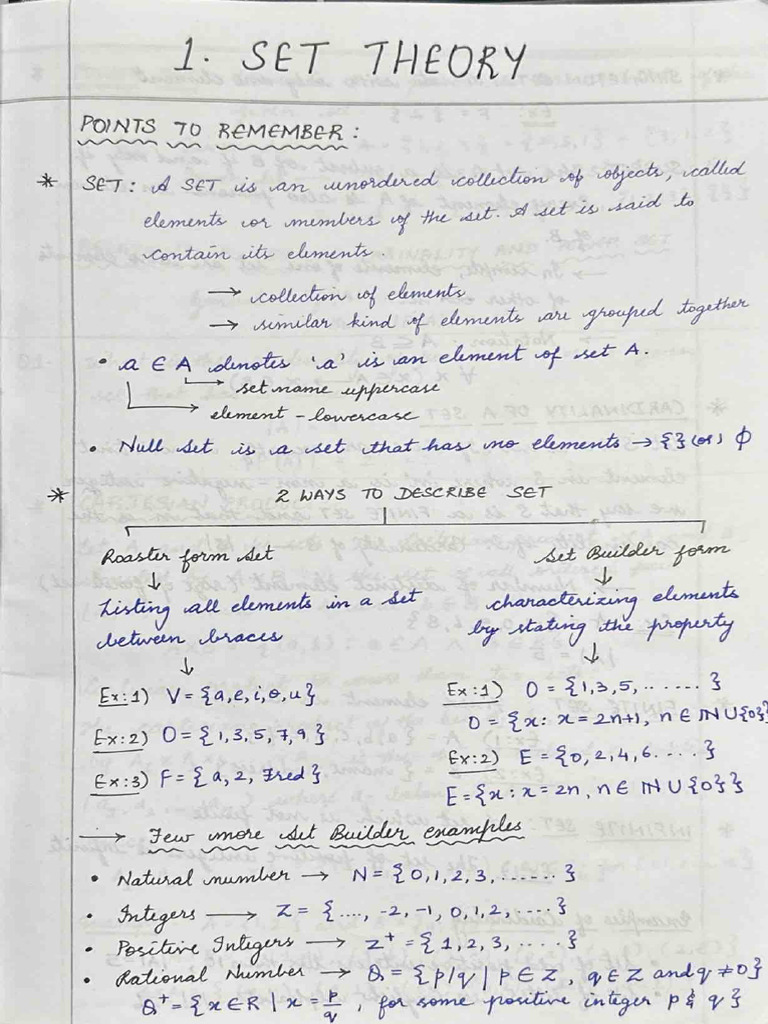 1. SET THEORY
POINTS TO REMEMBER:
* SET: A SET is an unordered collection of objects, called
elements or members of the set. A set is said to
contain its elements.
→ collection of elements
→ similar kind of elements are grouped together
• a ∈ A denotes 'a' is an element of set A.
→ set name uppercase
→ element - lowercase
• Null set is a set that has no elements → {} (or) ϕ
* 2 WAYS TO DESCRIBE SET
Roaster form set
↓
Listing all elements in a set
between braces
↓
Ex:1) V = {a,e,i,o,u}
Ex:2) O = {1,3,5,7,9}
Ex:3) F = {a, 2, Fred}
Set Builder form
↓
characterizing elements
by stating the property
↓
Ex:1) O = {1,3,5,.......}
O = {x: x = 2n+1, n ∈ ℕ ∪ {0}}
Ex:2) E = {0,2,4,6....}
E = {x : x = 2n, n ∈ ℕ ∪ {0}}
→ Few more set Builder examples
• Natural number → N = {0,1,2,3,......}
• Integers → Z = {...., -2, -1, 0, 1, 2, ....}
• Positive Integers → Z⁺ = {1, 2, 3, ....}
• Rational Number → Q = {p/q | p ∈ Z, q ∈ Z and q ≠ 0}
Q⁺ = {x ∈ R | x = p/q, for some positive integer p & q}